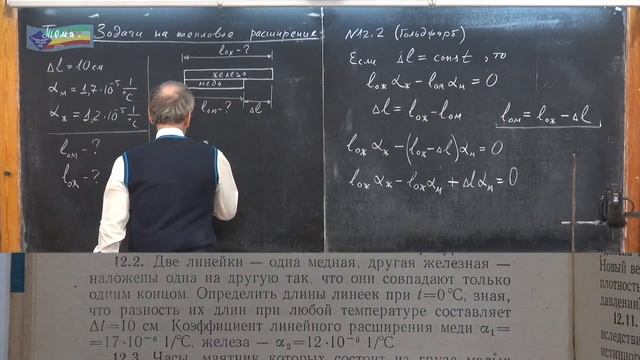 Тема: Задачи на тепловое расширение
Δl = 10 см
α_м = 1,7·10⁻⁵ 1/°C
α_ж = 1,2·10⁻⁵ 1/°C
l_ом - ?
l_ож - ?
l_ож - ?
железо
медь
l_ом - ?
Δl
N12.2 (Гольдфарб)
Если Δl = const, то
l_ож α_ж - l_ом α_м = 0
Δl = l_ож - l_ом
l_ом = l_ож - Δl
l_ож α_ж - (l_ож - Δl) α_м = 0
l_ож α_ж - l_ож α_м + Δl α_м = 0
12.2. Две линейки — одна медная, другая железная —
наложены одна на другую так, что они совпадают только
одним концом. Определить длины линеек при t=0 °C, зная,
что разность их длин при любой температуре составляет
Δl=10 см. Коэффициент линейного расширения меди α₁=
=17·10⁻⁶ 1/°C, железа — α₂=12·10⁻⁶ 1/°C.
12.3. Часы, маятник которых состоит из груза малых
Новый
плотность
давлении
12.11.
вследств